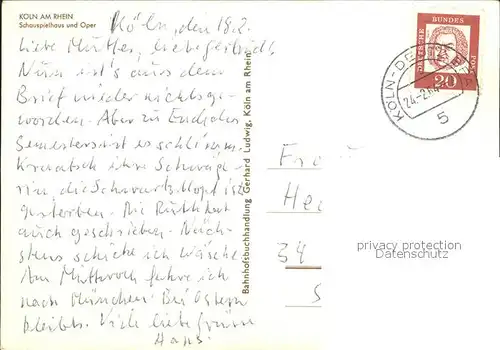 KÖLN AM RHEIN
Schauspielhaus und Oper
Köln, den 18.2.
Liebe Mutter, liebe
Nun ist's aus dem
Brief wieder nichts ge-
worden. Aber zu Ende des
Semesters ist es schlimm.
ihre Schwäge-
rin die ist
gestorben. Die Ruth hat
auch geschrieben. Näch-
stens schicke ich Wäsche.
Am Mittwoch fahre ich
nach München. Bei Ostern
bleibts. Viele liebe Grüsse
Hans.
Bahnhofsbuchhandlung Gerhard Ludwig, Köln am Rhein
DEUTSCHE BUNDESPOST
20
KÖLN-DE
24.-2.64
5
Fr
He
34
S
privacy protection
Datenschutz